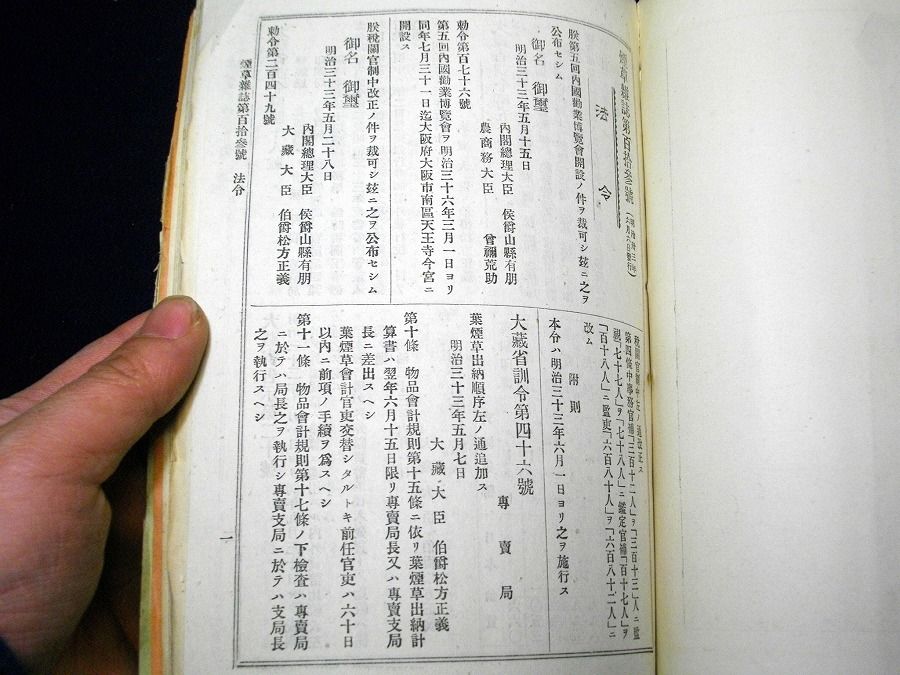 煙草雜誌第百拾參號(明治卅三年六月六日發行)
法令
朕第五回內國勸業博覽會開設ノ件ヲ裁可シ茲ニ之ヲ
公布セシム
御名 御璽
明治三十三年五月十五日
內閣總理大臣 侯爵山縣有朋
農商務大臣 曾禰荒助
勅令第百七十六號
第五回內國勸業博覽會ヲ明治三十六年三月一日ヨリ
同年七月三十一日迄大阪府大阪市南區天王寺今宮ニ
開設ス
朕稅關官制中改正ノ件ヲ裁可シ茲ニ之ヲ公布セシム
御名 御璽
明治三十三年五月二十八日
內閣總理大臣 侯爵山縣有朋
大藏大臣 伯爵松方正義
勅令第二百四十九號
稅關官制中左ノ通改正ス
第四條中事務官補「三百十二人」ヲ「三百十三」人ニ監
視「七十七人」ヲ「七十八人」ニ鑑定官補「百十七人」ヲ
「百十八人」ニ監吏「六百八十人」ヲ「六百八十二人」ニ
改ム
附則
本令ハ明治三十三年六月一日ヨリ之ヲ施行ス
大藏省訓令第四十六號
專賣局
葉煙草出納順序左ノ通追加ス
明治三十三年五月七日
大藏大臣 伯爵松方正義
第十條 物品會計規則第十五條ニ依リ葉煙草出納計
算書ハ翌年六月十五日限リ專賣局長又ハ專賣支局
長ニ差出スヘシ
葉煙草會計官吏交替シタルトキ前任官吏ハ六十日
以內ニ前項ノ手續ヲ爲スヘシ
第十一條 物品會計規則第十七條ノ下檢査ハ專賣局
ニ於テハ局長之ヲ執行シ專賣支局ニ於テハ支局長
之ヲ執行スヘシ
煙草雜誌第百拾參號 法令
一